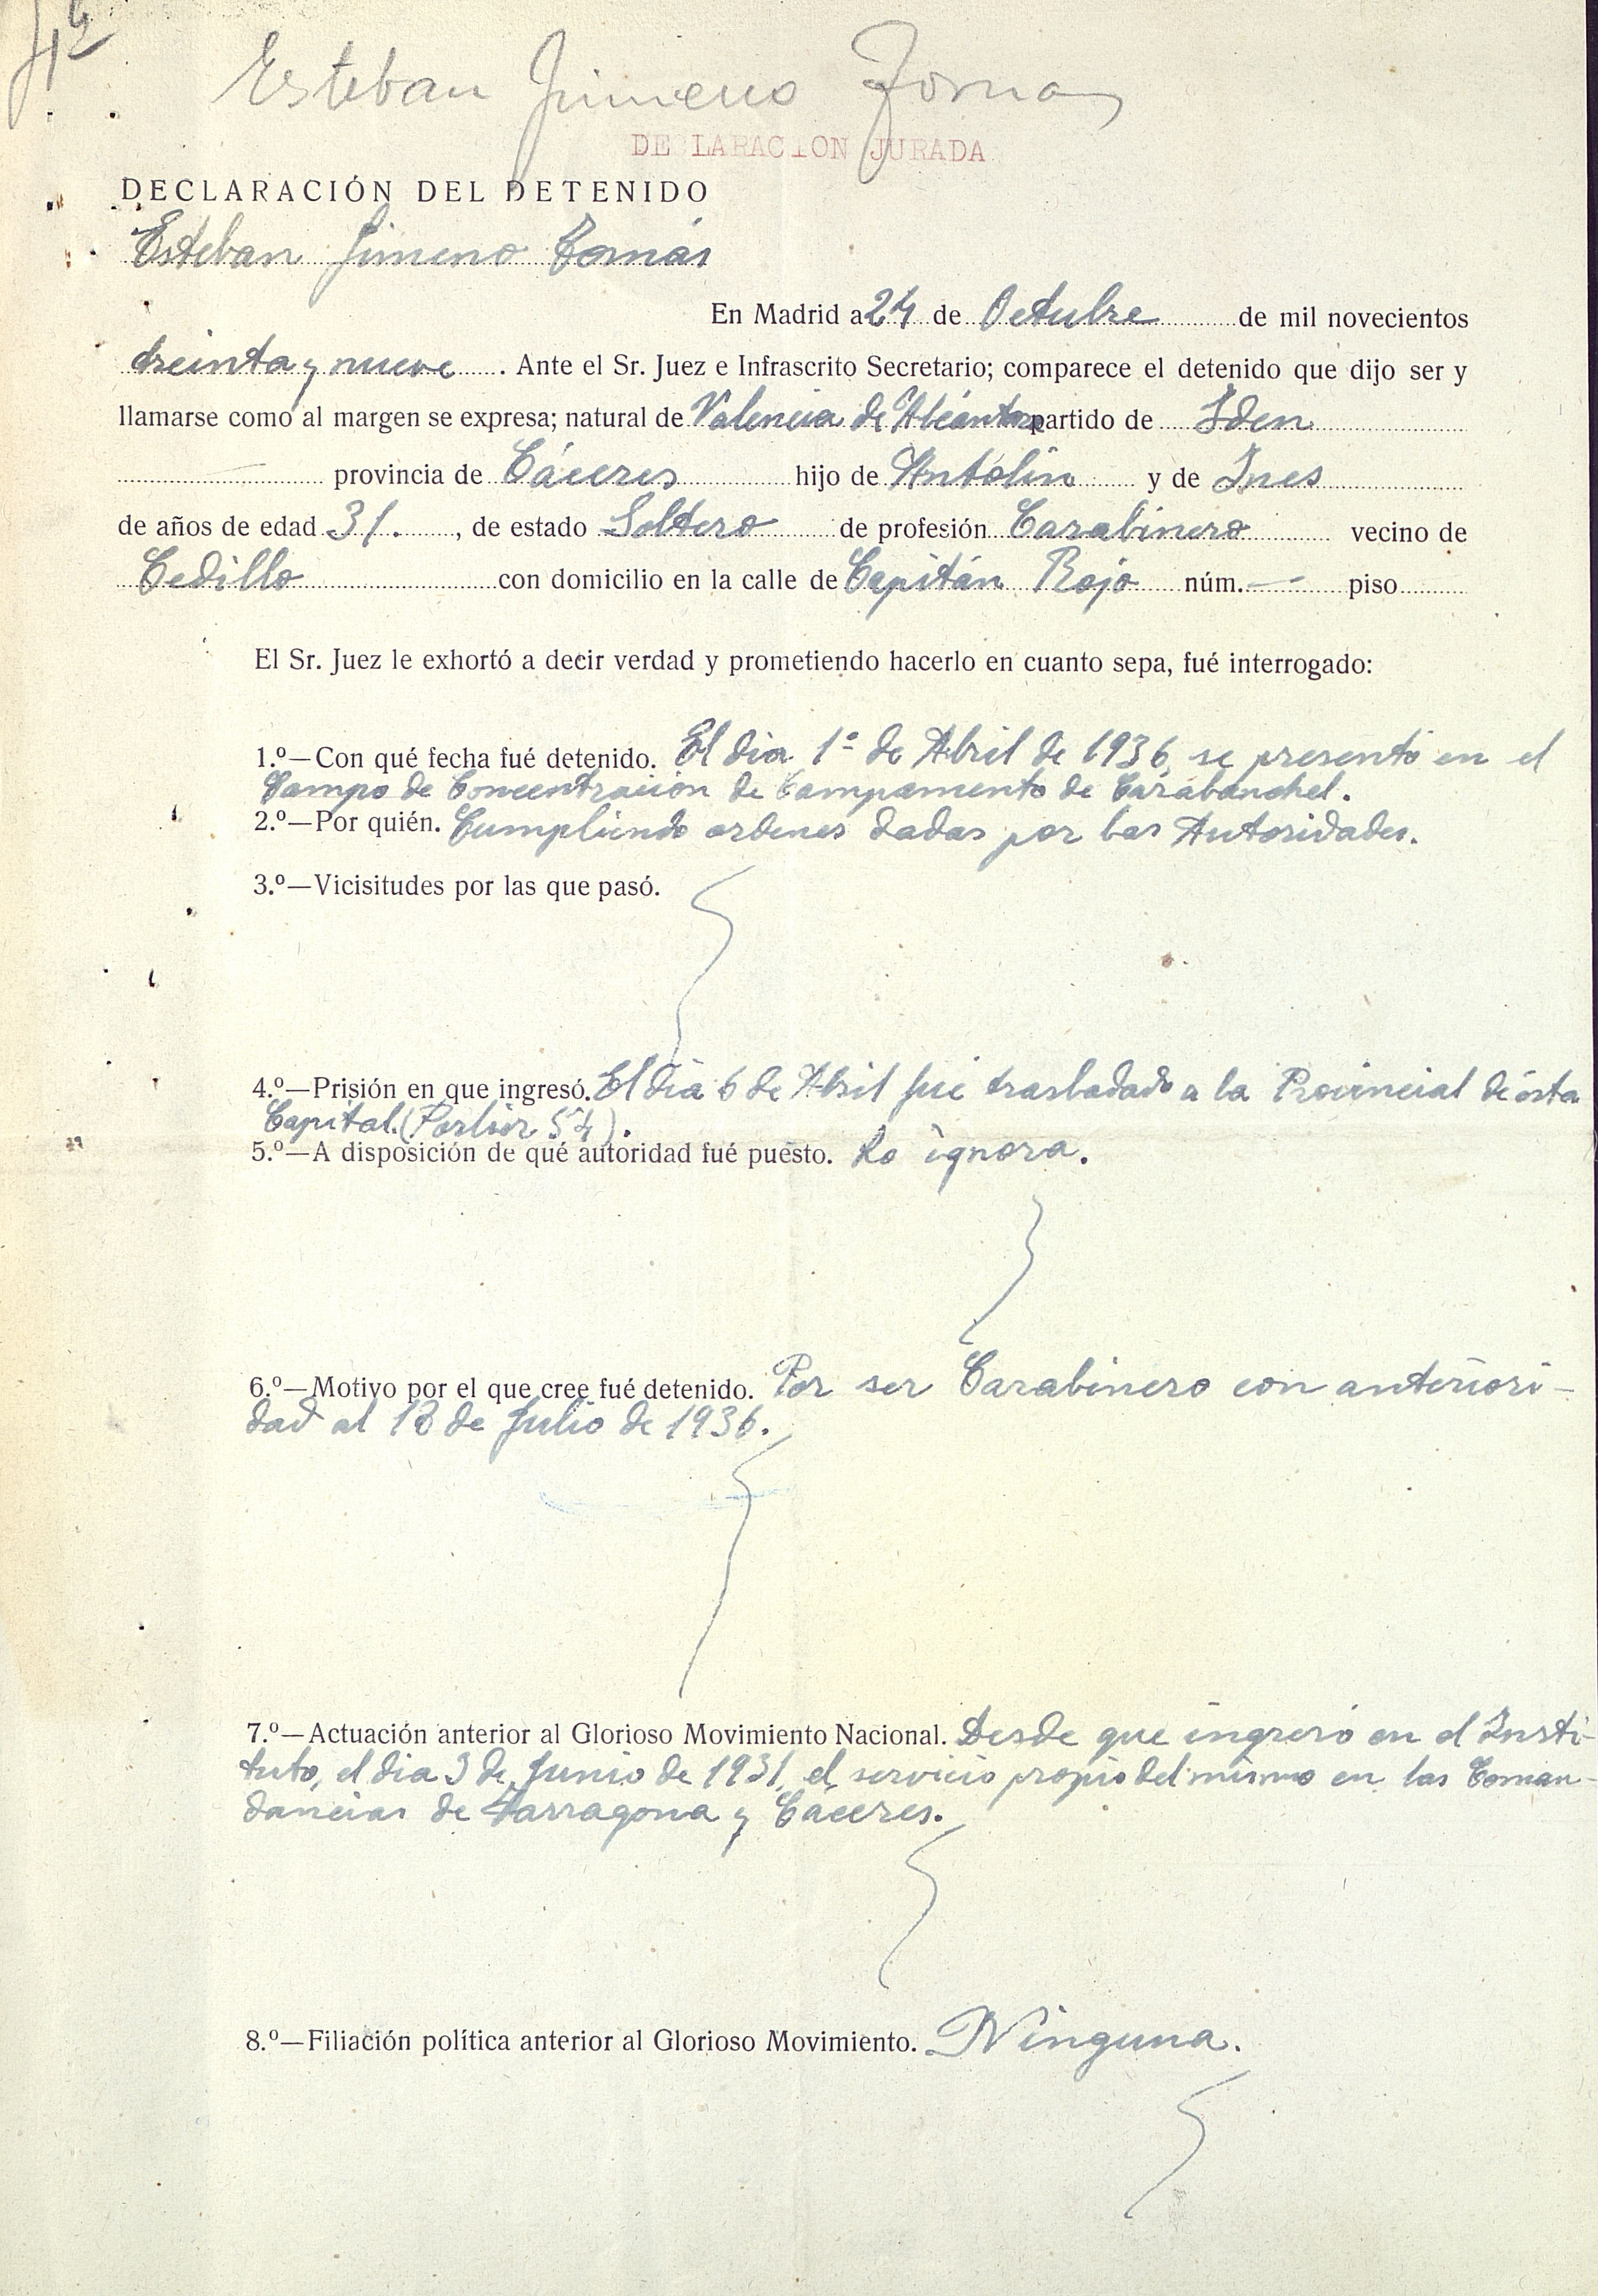 Esteban Jimeno Tomas
DE LARACION JURADA
DECLARACIÓN DEL DETENIDO
Esteban Jimeno Tomás
En Madrid a 24 de Octubre de mil novecientos
treinta y nueve. Ante el Sr. Juez e Infrascrito Secretario; comparece el detenido que dijo ser y
llamarse como al margen se expresa; natural de Valencia de Alcántara partido de Iden
provincia de Cáceres hijo de Antolin y de Ines
de años de edad 31., de estado Soltero de profesión Carabinero vecino de
Cedillo con domicilio en la calle de Capitán Rojo núm. — piso
El Sr. Juez le exhortó a decir verdad y prometiendo hacerlo en cuanto sepa, fué interrogado:
1.º—Con qué fecha fué detenido. El dia 1º de Abril de 1936, se presentó en el
Campo de Concentración de Campamento de Carabanchel.
2.º—Por quién. Cumpliendo ordenes dadas por las Autoridades.
3.º—Vicisitudes por las que pasó.
4.º—Prisión en que ingresó. El dia 6 de Abril fué trasladado a la Provincial de ésta
Capital. (Porlier 54).
5.º—A disposición de qué autoridad fué puesto. Lo ignora.
6.º—Motivo por el que cree fué detenido. Por ser Carabinero con anteriori-
dad al 18 de Julio de 1936.
7.º—Actuación anterior al Glorioso Movimiento Nacional. Desde que ingresó en el Insti-
tuto, el dia 3 de Junio de 1931, el servicio propio del mismo en las Coman-
dancias de Tarragona y Cáceres.
8.º—Filiación política anterior al Glorioso Movimiento. Ninguna.